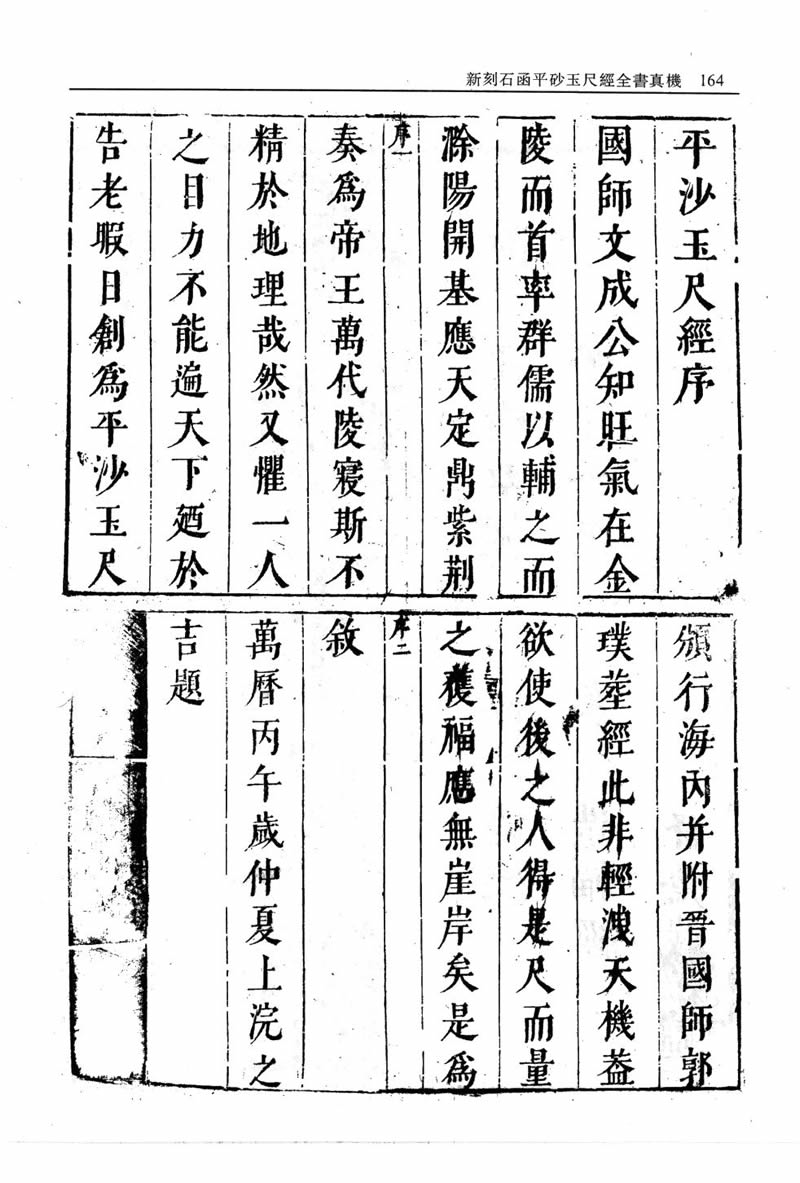 新刻石函平砂玉尺經全書真機 164
平沙玉尺經序
國師文成公知旺氣在金
陵而首率群儒以輔之而
滁陽開基應天定鼎紫荆
序一
奏爲帝王萬代陵寢斯不
精於地理哉然又懼一人
之目力不能遍天下廼於
告老暇日創爲平沙玉尺
頒行海内并附晉國師郭
璞葬經此非輕洩天機葢
欲使後之人得是尺而量
之穫福應無崖岸矣是爲
序二
敘
萬曆丙午歲仲夏上浣之
吉題